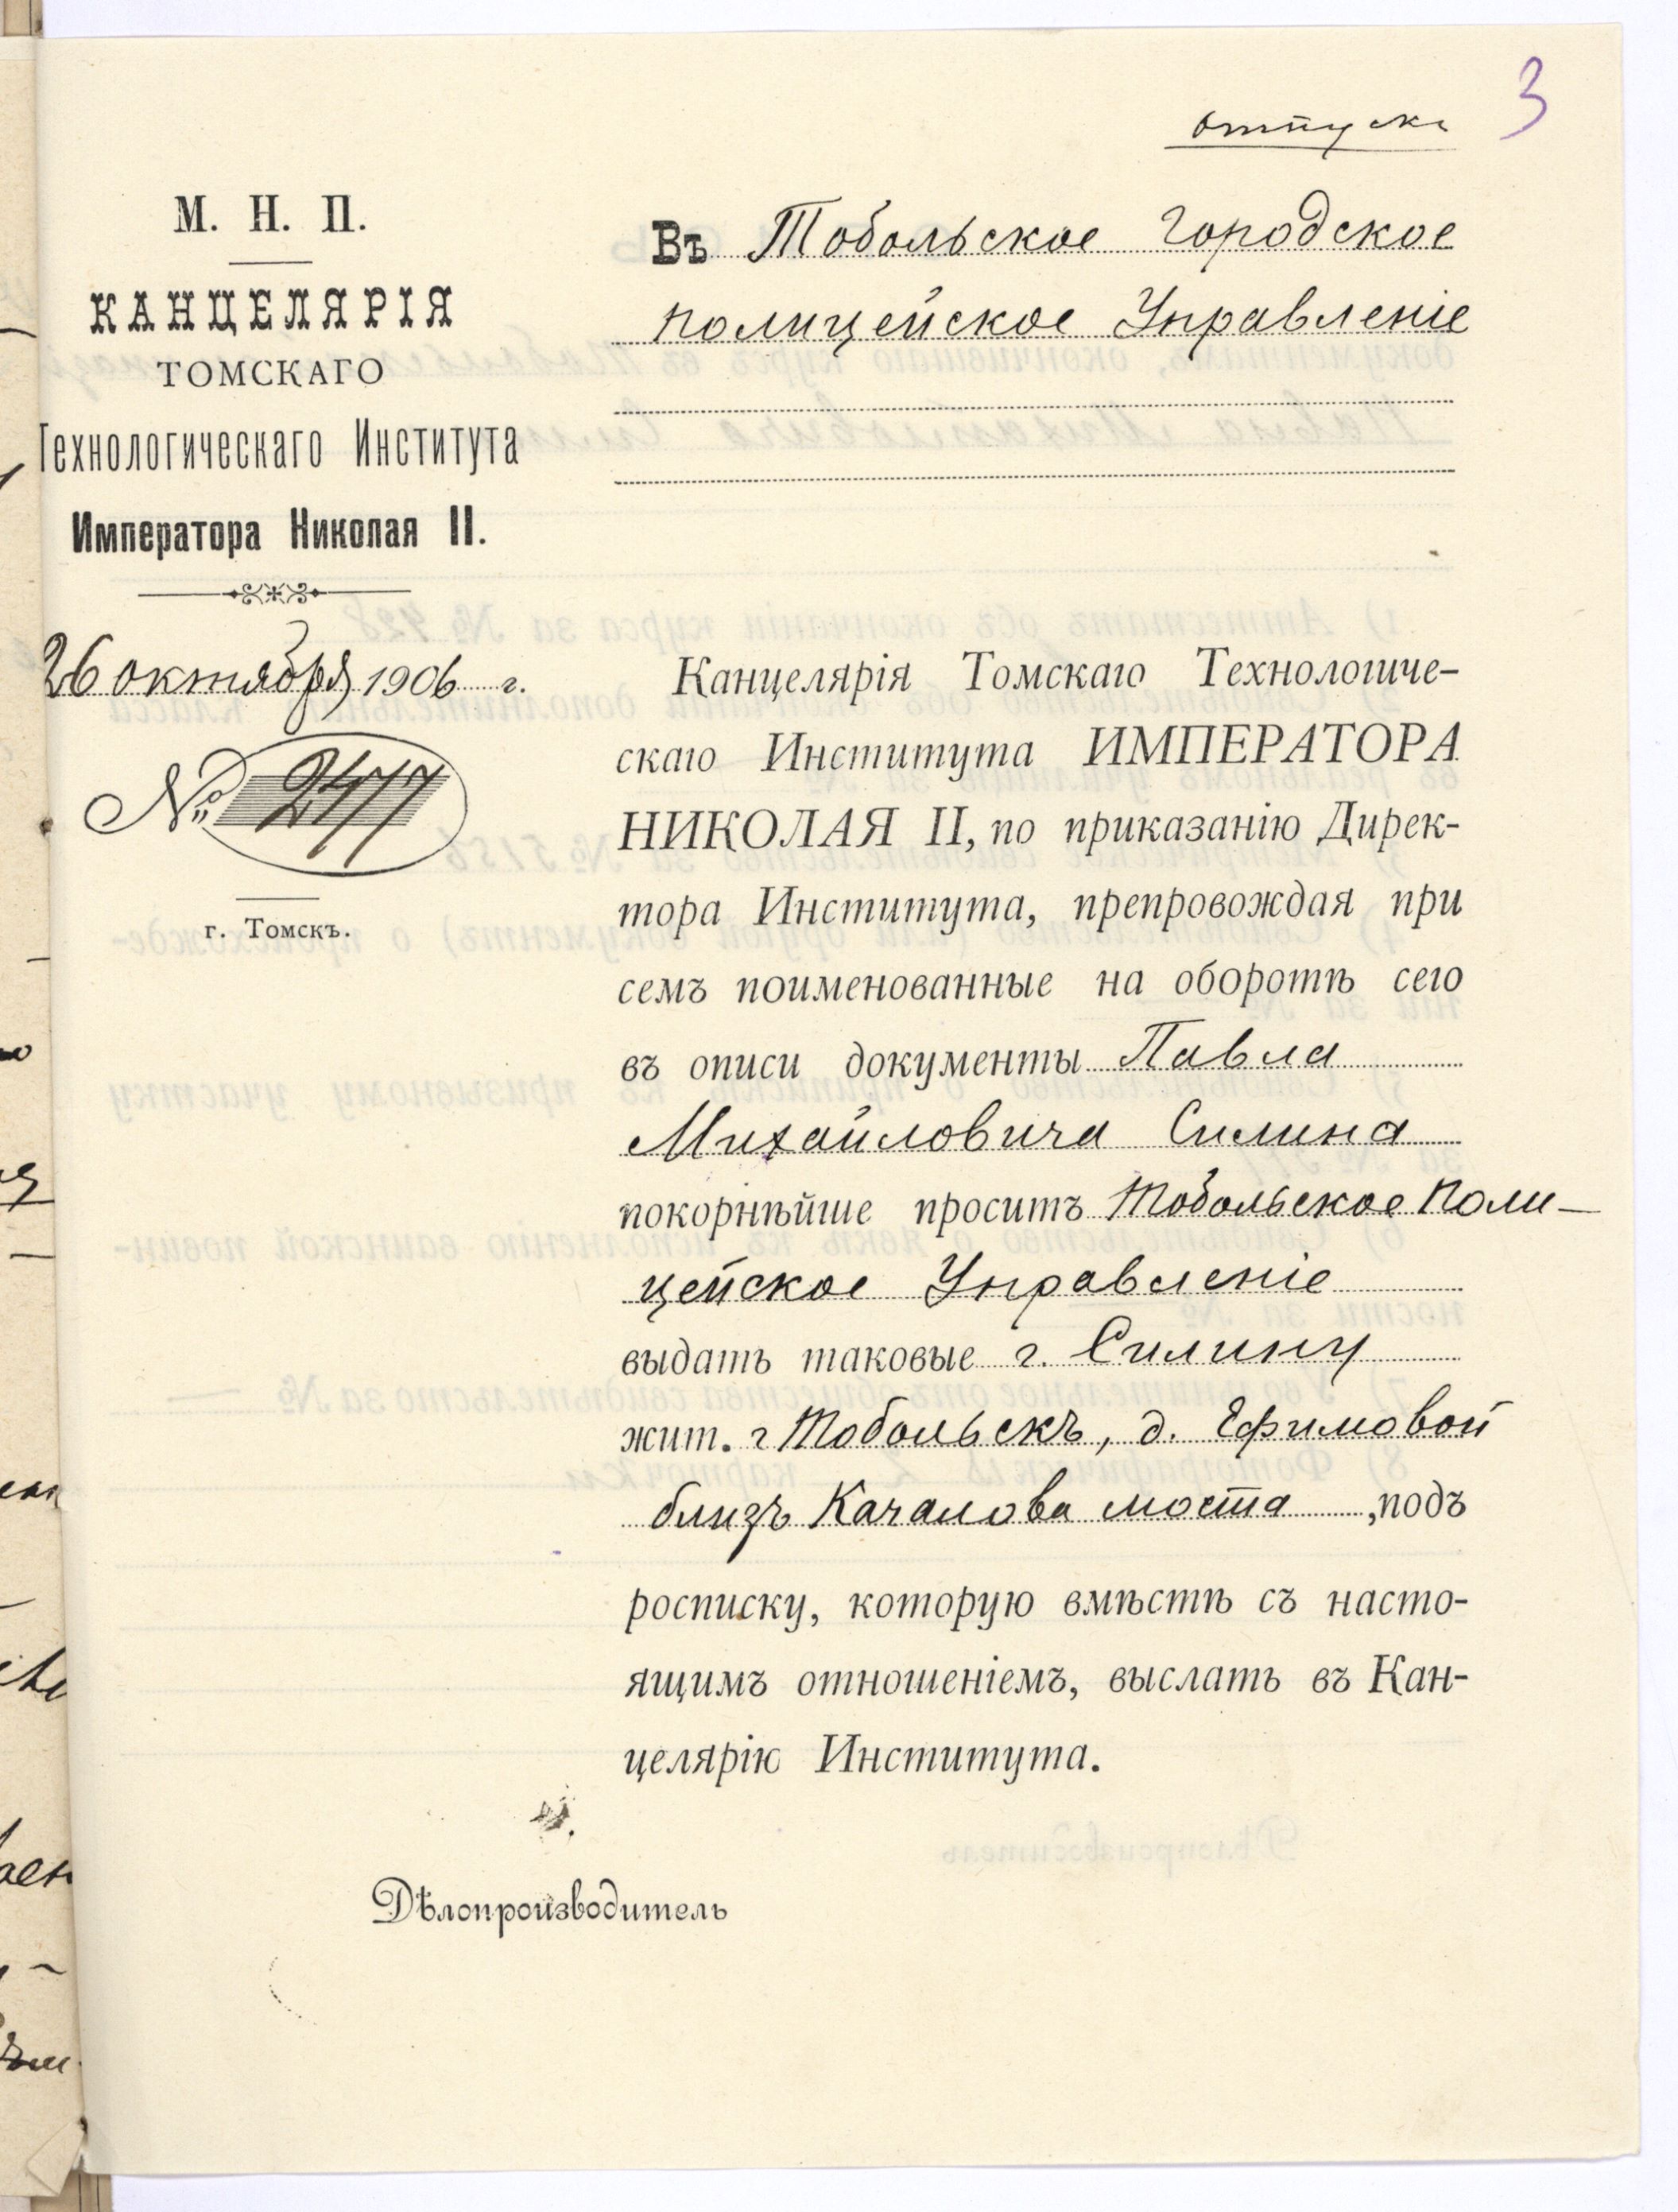 3
отпускъ
М. Н. П.
КАНЦЕЛЯРІЯ
ТОМСКАГО
Технологическаго Института
Императора Николая II.
26 октября 1906 г.
№ 2477
г. Томскъ.
Въ Тобольское Городское
полицейское Управленіе
Канцелярія Томскаго Технологиче-
скаго Института ИМПЕРАТОРА
НИКОЛАЯ II, по приказанію Дирек-
тора Института, препровождая при
семъ поименованные на оборотѣ сего
въ описи документы Павла
Михайловича Силина
покорнѣйше проситъ Тобольское Поли-
цейское Управленіе
выдать таковые г. Силину
жит. г Тобольскъ, д. Ефимовой
близъ Качалова моста, подъ
росписку, которую вмѣстѣ съ насто-
ящимъ отношеніемъ, выслать въ Кан-
целярію Института.
Дѣлопроизводитель